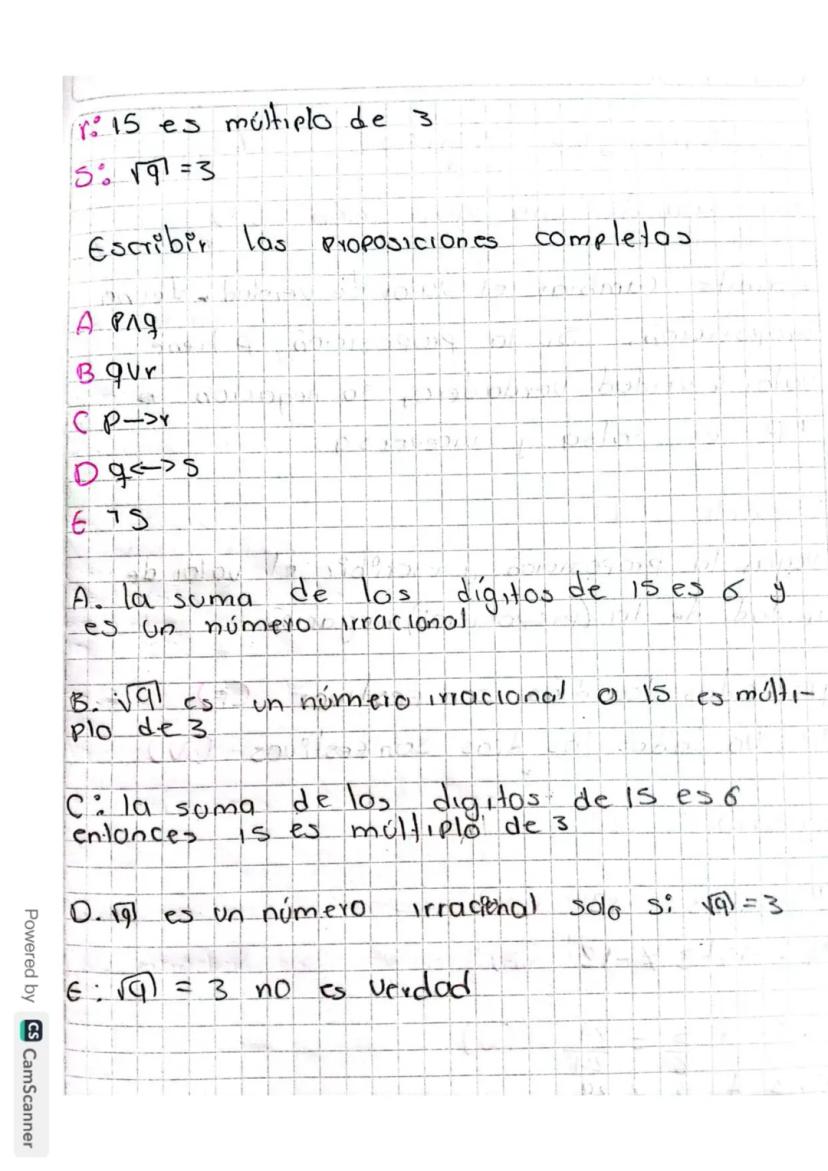 r: 15 es múltiplo de 3
S: √9 = 3
Escribir las proposiciones completas
A p∧q
B q∨r
C p→r
D q<->s
E ¬S
A. la suma de los dígitos de 15 es 6 y
es un número irracional
B. √9 es un número irracional o 15 es múlti-
plo de 3
C: la suma de los digitos de 15 es 6
entonces 15 es múltiplo de 3
D. √9 es un número irracional solo si √9 = 3
E: √9 = 3 no es verdad
Powered by CS CamScanner